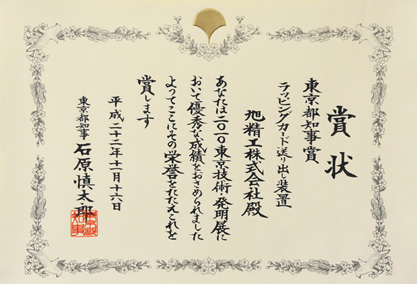 賞状
東京都知事賞
ラッピングカード送り出し装置
旭精工株式会社殿
あなたは二〇一〇東京技術・発明展に
おいて優秀な成績をおさめられました
よってここにその栄誉をたたえこれを
賞します
平成二十二年十一月十六日
東京都知事 石原慎太郎